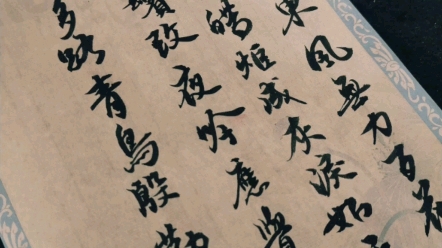 東風無力百花
炬成灰淚始
鬢改夜吟應覺
多路青鳥殷勤